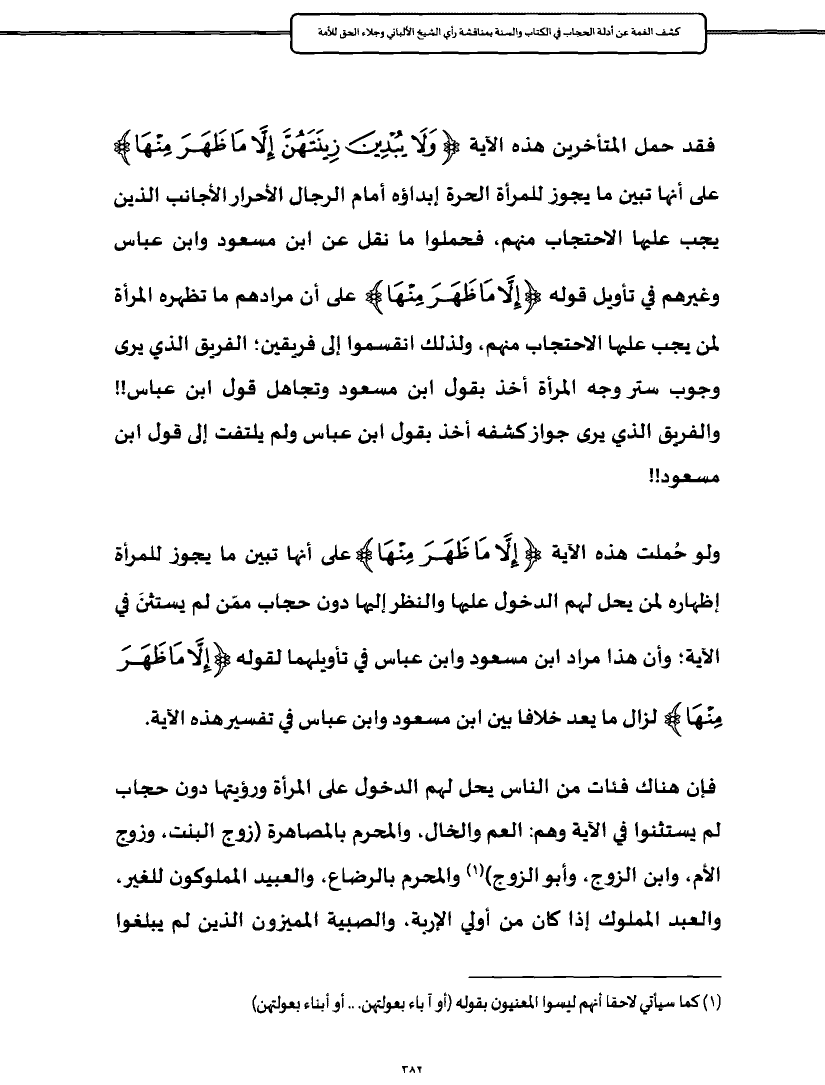 كشف الغمة عن أدلة الحجاب في الكتاب والسنة بمناقشة رأي الشيخ الألباني وجلاء الحق للأمة
فقد حمل المتأخرين هذه الآية ﴿وَلَا يُبْدِينَ زِينَتَهُنَّ إِلَّا مَا ظَهَرَ مِنْهَا﴾
على أنها تبين ما يجوز للمرأة الحرة إبداؤه أمام الرجال الأحرار الأجانب الذين
يجب عليها الاحتجاب منهم، فحملوا ما نقل عن ابن مسعود وابن عباس
وغيرهم في تأويل قوله ﴿إِلَّا مَا ظَهَرَ مِنْهَا﴾ على أن مرادهم ما تظهره المرأة
لمن يجب عليها الاحتجاب منهم، ولذلك انقسموا إلى فريقين؛ الفريق الذي يرى
وجوب ستر وجه المرأة أخذ بقول ابن مسعود وتجاهل قول ابن عباس!!
والفريق الذي يرى جواز كشفه أخذ بقول ابن عباس ولم يلتفت إلى قول ابن
مسعود!!
ولو حُملت هذه الآية ﴿إِلَّا مَا ظَهَرَ مِنْهَا﴾ على أنها تبين ما يجوز للمرأة
إظهاره لمن يحل لهم الدخول عليها والنظر إليها دون حجاب ممّن لم يستثنَ في
الآية؛ وأن هذا مراد ابن مسعود وابن عباس في تأويلهما لقوله ﴿إِلَّا مَا ظَهَرَ
مِنْهَا﴾ لزال ما يعد خلافا بين ابن مسعود وابن عباس في تفسير هذه الآية.
فإن هناك فئات من الناس يحل لهم الدخول على المرأة ورؤيتها دون حجاب
لم يستثنوا في الآية وهم: العم والخال، والمحرم بالمصاهرة (زوج البنت، وزوج
الأم، وابن الزوج، وأبو الزوج)(١) والمحرم بالرضاع، والعبيد المملوكون للغير،
والعبد المملوك إذا كان من أولي الإربة، والصبية المميزون الذين لم يبلغوا
(١) كما سيأتي لاحقا أنهم ليسوا المعنيون بقوله (أو آباء بعولتهن. .. أو أبناء بعولتهن)
٣٨٢